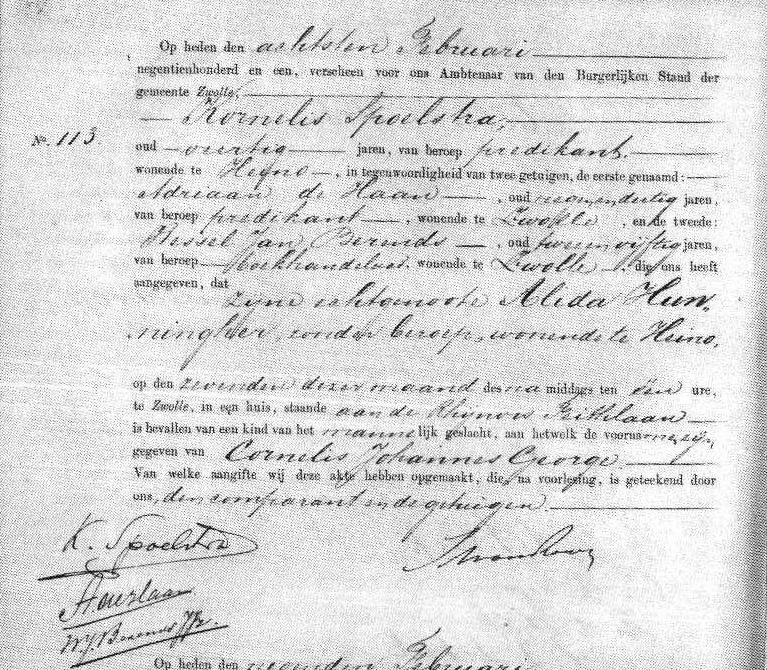 Op heden den achtsten Februari
negentienhonderd en een, verscheen voor ons Ambtenaar van den Burgerlijken Stand der
gemeente Zwolle,
Kornelis Spoelstra,
No. 113.
oud veertig jaren, van beroep predikant,
wonende te Heino, in tegenwoordigheid van twee getuigen, de eerste genaamd:
Adriaan de Haan, oud jaren,
van beroep predikant, wonende te Zwolle, en de tweede:
Wessel Jan Berends, oud twee en vijftig jaren,
van beroep Boekhandelaar, wonende te Zwolle, die ons heeft
aangegeven, dat
zijne echtgenoote Alida Hun-
ningher, zonder beroep, wonende te Heino,
op den zevenden dezer maand des na middags ten één ure,
te Zwolle, in een huis, staande aan de Rhijnvis Feithlaan
is bevallen van een kind van het mannelijk geslacht, aan hetwelk de voornamen zijn
gegeven van Cornelis Johannes George.
Van welke aangifte wij deze akte hebben opgemaakt, die, na voorlezing, is geteekend door
ons, den comparant en de getuigen.
K. Spoelstra
W. J. Berends
Op heden den negenden Februari